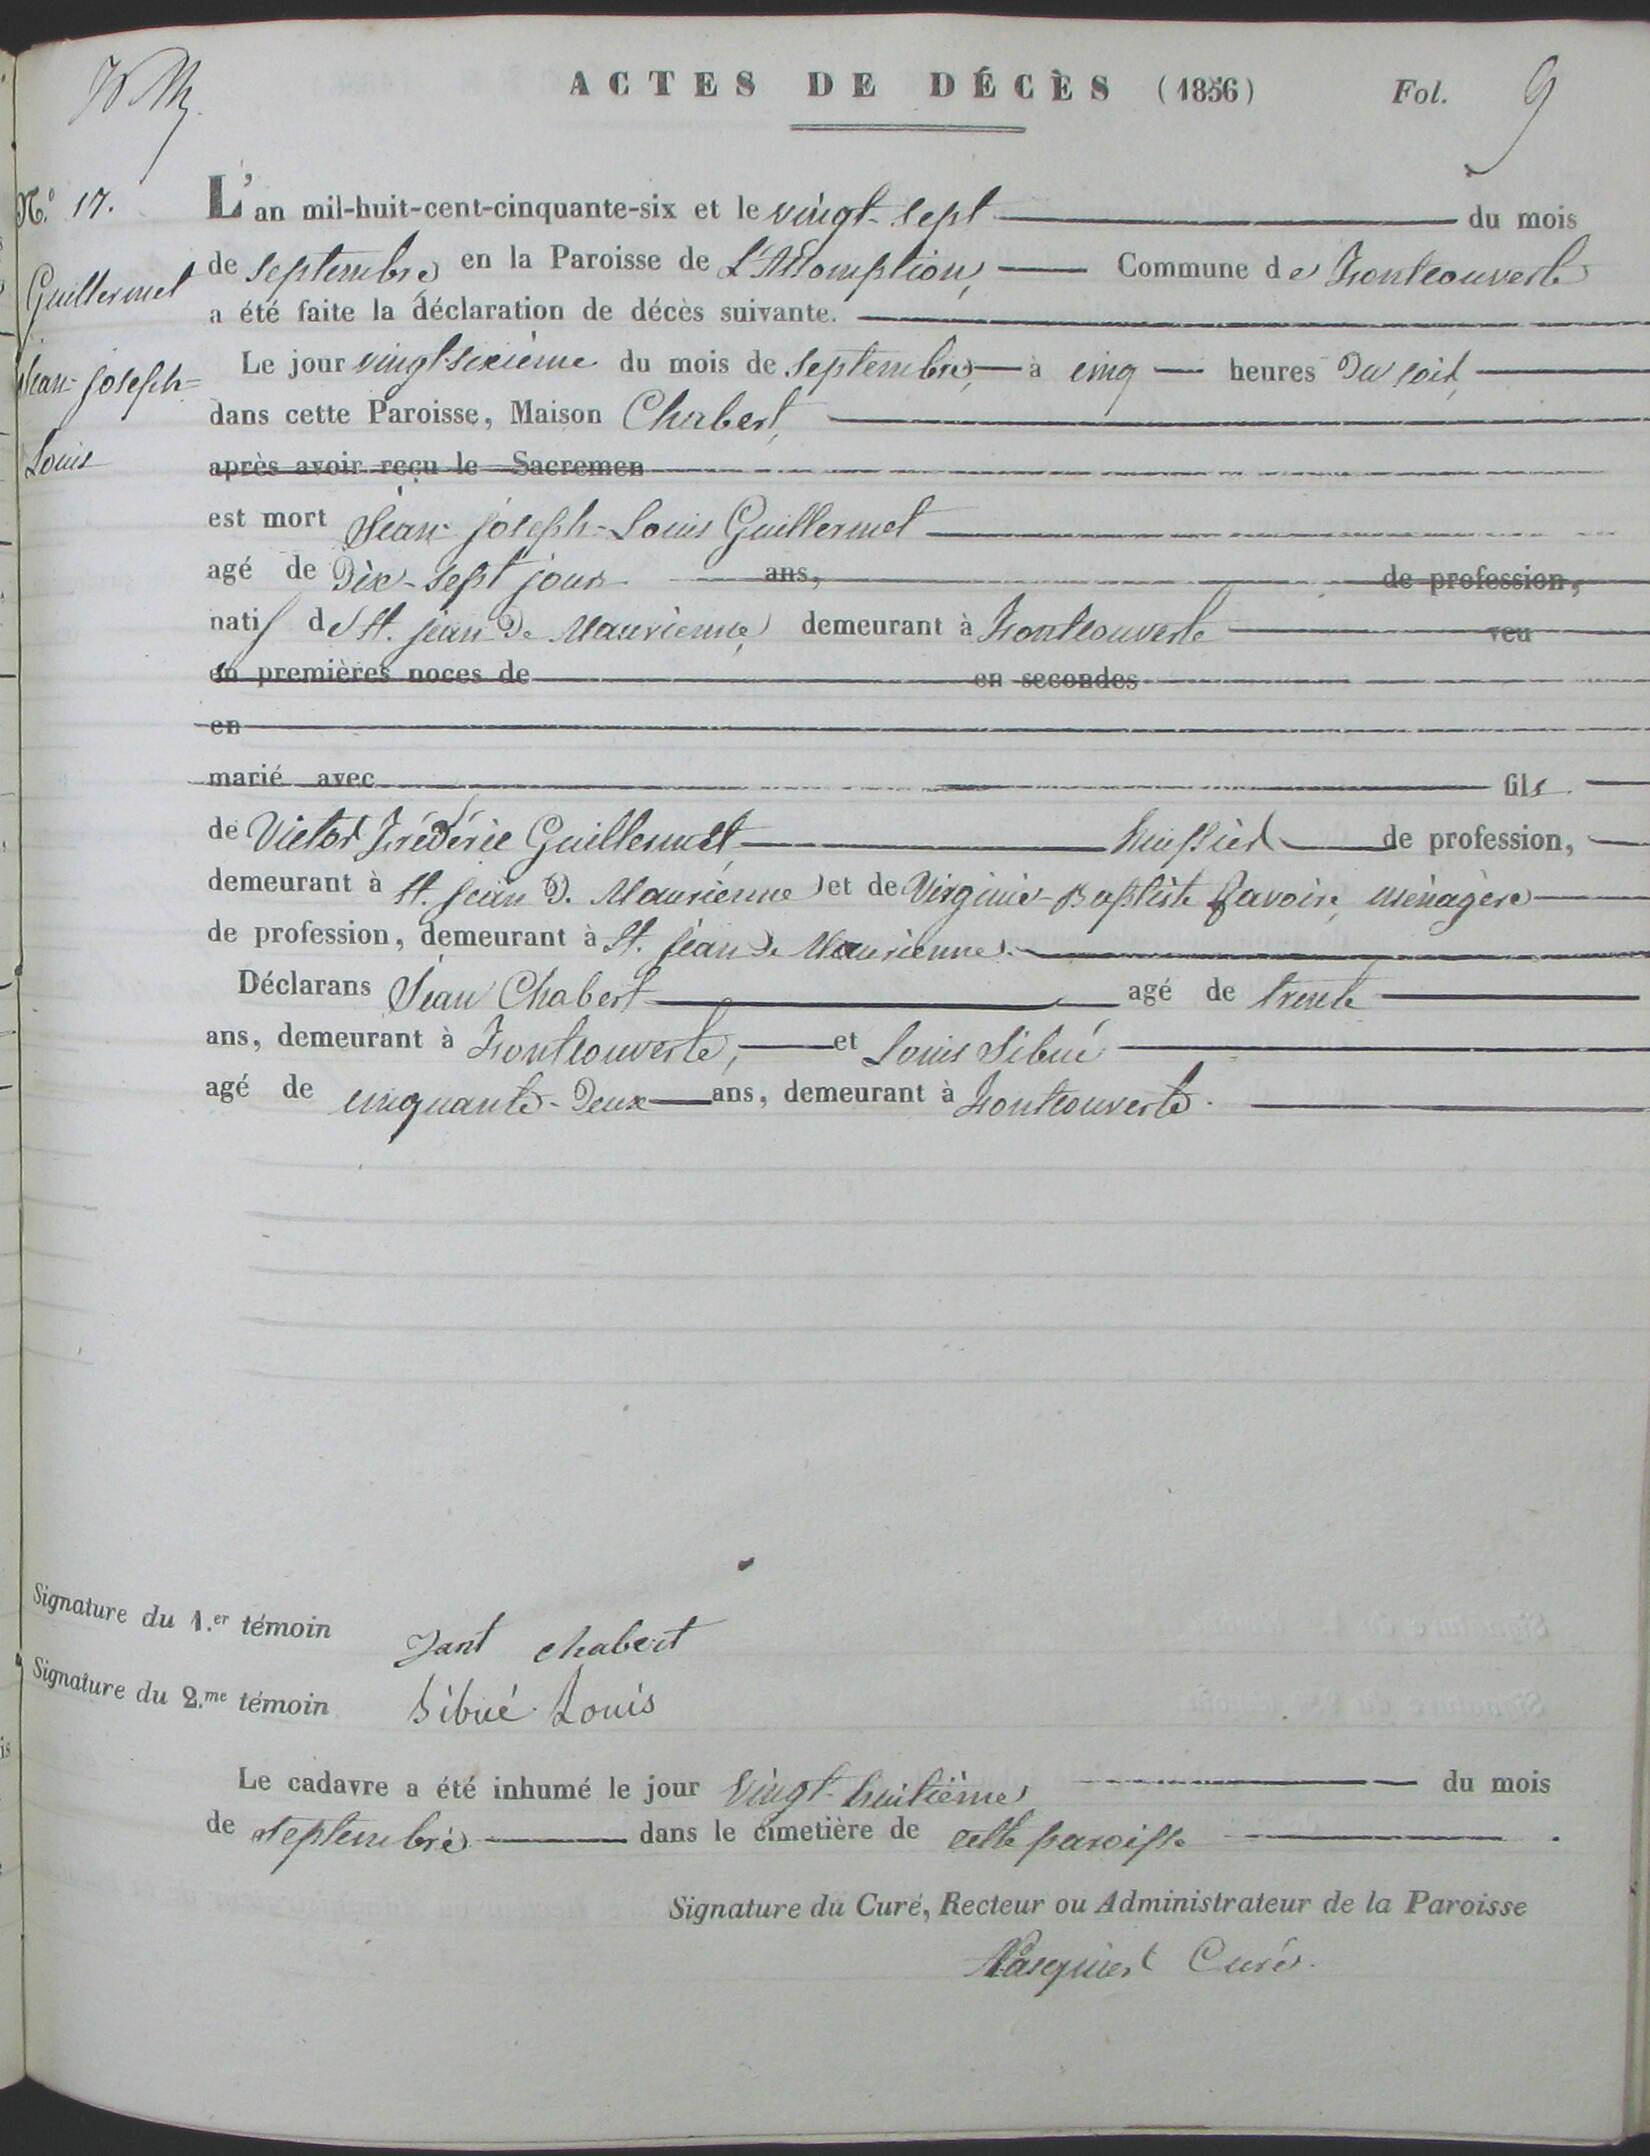 ACTES DE DÉCÈS (1856) Fol. 9
N.º 17.
Guillermet
Jean-joseph-
Louis
L'an mil-huit-cent-cinquante-six et le vingt-sept du mois
de septembre, en la Paroisse de L'Assomption, Commune de Fontcouverte
a été faite la déclaration de décès suivante.
Le jour vingt-sixième du mois de septembre, à cinq heures du soir,
dans cette Paroisse, Maison Chabert,
après avoir reçu le Sacremen
est mort Jean-joseph-Louis Guillermet
agé de Dix-sept jours ans, de profession,
natif de St. jean de Maurienne, demeurant à Fontcouverte veu
en premières noces de en secondes
en
marié avec fils
de Victor Frédéric Guillermet, huissier de profession,
demeurant à St. jean D. Maurienne et de Virginie-Baptiste Savoie, ménagère
de profession, demeurant à St. jean de Maurienne.
Déclarans Jean Chabert agé de trente
ans, demeurant à Fontcouverte, et Louis Sibué
agé de cinquante-deux ans, demeurant à Fontcouverte.
Signature du 1.er témoin Jant chabert
Signature du 2.me témoin Sibué Louis
Le cadavre a été inhumé le jour vingt-huitième du mois
de septembre dans le cimetière de cette paroisse.
Signature du Curé, Recteur ou Administrateur de la Paroisse
Pasquier Curé.